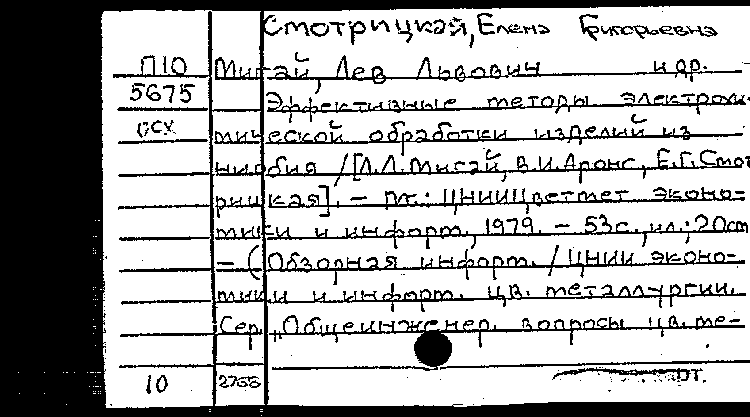 Смотрицкая, Елена Григорьевна
П10 Мигай, Лев Львович и др.
5675 Эффективные методы электрохи-
мической обработки изделий из
ниобия / [Л.Л. Мигай, В.И. Аронс, Е.Г. Смот
рицкая]. – М.: ЦНИИцветмет эконо-
мики и информ., 1979. – 53 с., ил.; 20 см
– (Обзорная информ. / ЦНИИ эконо-
мики и информ. цв. металлургии.
Сер. „Общеинженер. вопросы цв. ме-
10